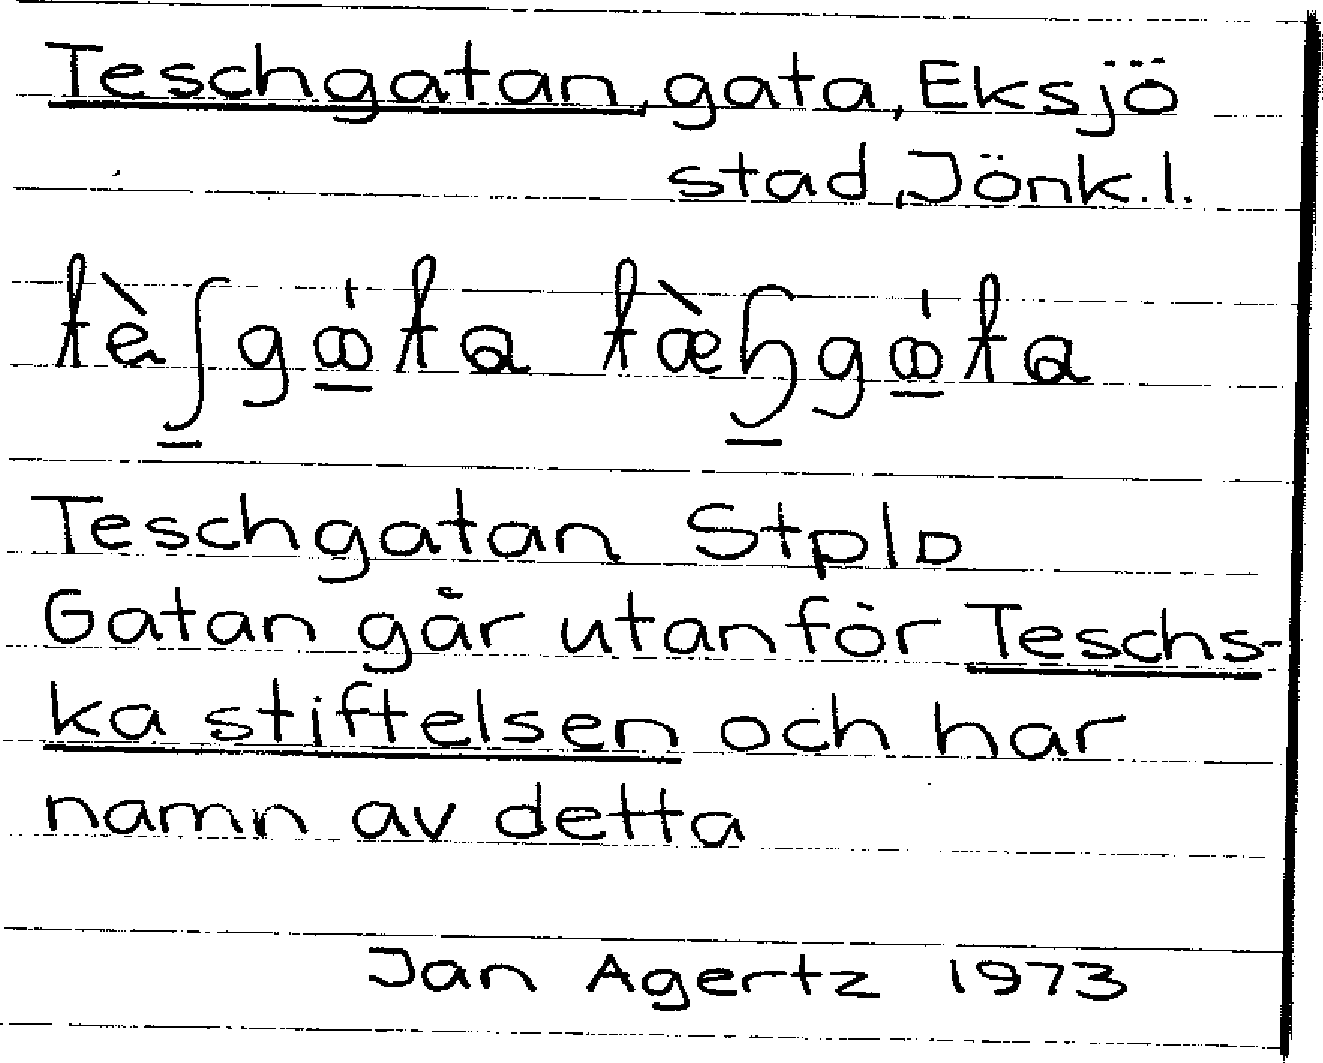 Teschgatan, gata, Eksjö
stad, Jönk.l.
Teschgatan Stpln
Gatan går utanför Teschs-
ka stiftelsen och har
namn av detta
Jan Agertz 1973